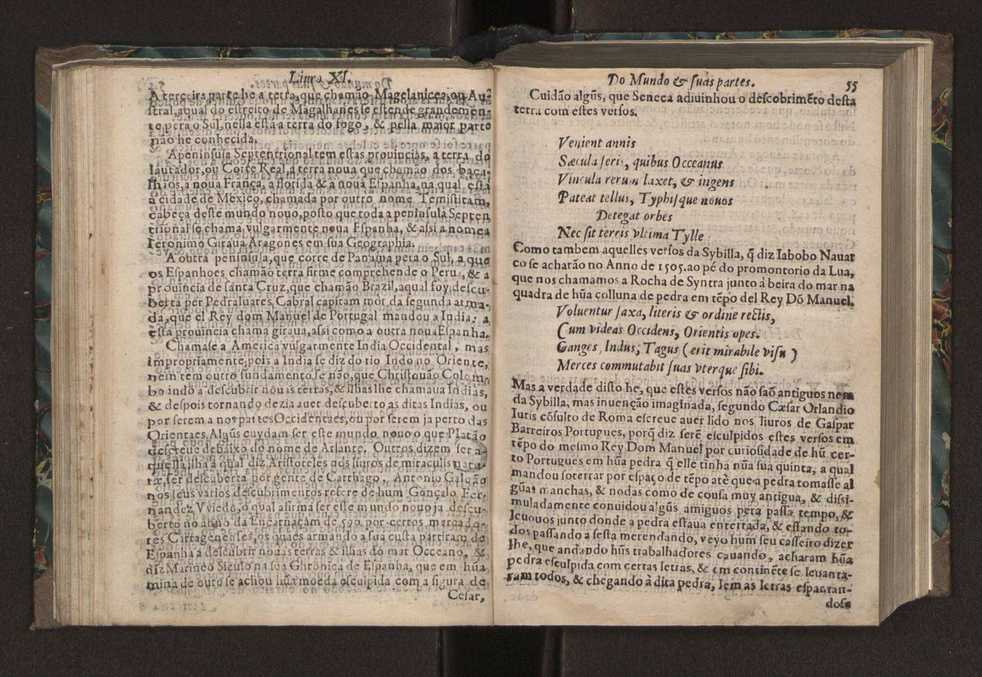 Liuro XI.
A terceira parte he a terra, que chamão Magelanica, ou Au-
stral, aqual do estreito de Magalhães se estende grandemen-
te pera o Sul, nella está a terra do fogo, & pella maior parte
não he conhecida.
A peninsula Septentrional tem estas prouincias, a terra do
laurador, ou Corte Real, a terra noua que chamão dos baca-
lhaos, a noua França, a florida & a noua Espanha, na qual está
a cidade de Mexico, chamada por outro nome Temistitam,
cabeça deste mundo nouo, posto que toda a peninsula Septen
trional se chama vulgarmente noua Espanha, & assi a nomea
Ieronimo Giraua Aragones em sua Geographia.
A outra peninsula, que corre de Panama pera o Sul, a que
os Espanhoes chamão terra firme comprehende o Peru, & a
prouincia de santa Cruz, que chamão Brazil, aqual foy descu-
berta per Pedraluares Cabral capitam mór, da segunda arma-
da, que el Rey dom Manuel de Portugal mandou a India; a
esta prouincia chama giraua, assi como a outra noua Espanha.
Chamase a America vulgarmente India Occidental, mas
impropriamente, pois a India se diz do rio Indo no Oriente,
nem tem outro fundamento se não, que Christouão Colom-
bo indo a descubrir nouas terras, & ilhas lhe chamaua Indias,
& despois tornando dezia auer descuberto as ditas Indias, ou
por serem a nos partes Occidentaes, ou por serem ja perto das
Orientaes. Algũs cuydam ser este mundo nouo o que Platão
descreue debaixo do nome de Atlante. Outros dizem ser a-
quella ilha a qual diz Aristoteles nos liuros de miraculis natu-
ræ, ser descuberta por gente de Carthago, Antonio Galuão
nos seus varios descubrimentos refere de hum Gonçalo Fer-
nandez Viedo, o qual afirma ser este mundo nouo ja descu-
berto no anno da Encarnaçam de 590. por certos mercado-
res Cartagenenses, os quaes armando a sua custa partiram de
Espanha a descubrir nouas terras & ilhas do mar Occeano, &
diz Marineo Siculo na sua Chronica de Espanha, que em hũa
mina de ouro se achou hũa moeda esculpida com a figura de
Cesar,
Do Mundo & suas partes. 55
Cuidão algũs, que Seneca adiuinhou o descobrimẽto desta
terra com estes versos.
Venient annis
Sæcula seris, quibus Occeanus
Vincula rerum laxet, & ingens
Pateat tellus, Typhisque nouos
Detegat orbes
Nec sit terris vltima Tylle
Como tambem aquelles versos da Sybilla, q̃ diz Iabobo Nauar
co se acharão no Anno de 1505. ao pé do promontorio da Lua,
que nos chamamos a Rocha de Syntra junto á beira do mar na
quadra de hũa colluna de pedra em tẽpo del Rey Dõ Manuel.
Voluentur saxa, literis & ordine rectis,
Cum videas Occidens, Orientis opes.
Ganges, Indus, Tagus (erit mirabile visu)
Merces commutabit suas vterque sibi.
Mas a verdade disto he, que estes versos não saõ antiguos nem
da Sybilla, mas inuenção imaginada, segundo Cæsar Orlandio
Iuris cõsulto de Roma escreue auer lido nos liuros de Gaspar
Barreiros Portugues, porq̃ diz serẽ esculpidos estes versos em
tẽpo do mesmo Rey Dom Manuel por curiosidade de hũ cer-
to Portugues em hũa pedra q̃ elle tinha nũa sua quinta, a qual
mandou soterrar por espaço de tẽpo até que a pedra tomasse al
gũas manchas, & nodas como de cousa muy antigua, & dissi-
muladamente conuidou algũs amiguos pera passa tempo, &
leuouos junto donde a pedra estaua enterrada, & estando to-
dos passando a sesta merendando, veyo hum seu casseiro dizer
lhe, que andando hũs trabalhadores cauando, acharam hũa
pedra esculpida com certas letras, & em continẽte se leuanta-
ram todos, & chegando á dita pedra, lem as letras espantan-
dose